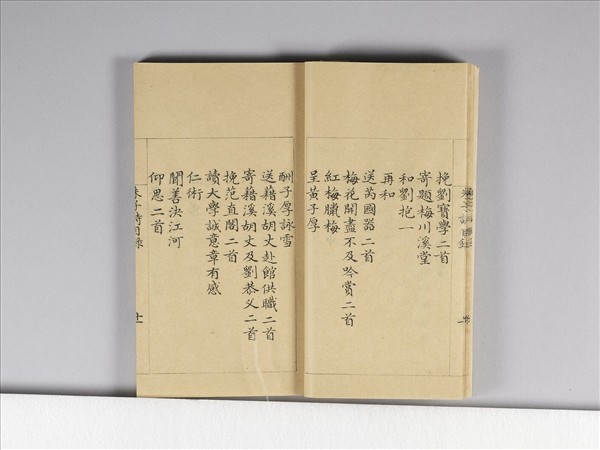 挽劉寶學二首
寄題梅川溪堂
和劉抱一
再和
送芮國器二首
梅花開盡不及吟賞二首
紅梅臘梅
呈黃子厚
酬子厚詠雪
送藉溪胡丈赴館供職二首
寄藉溪胡丈及劉恭父二首
挽范直閣二首
讀大學誠意章有感
仁術
聞善決江河
仰思二首
朱子詩目錄
十一